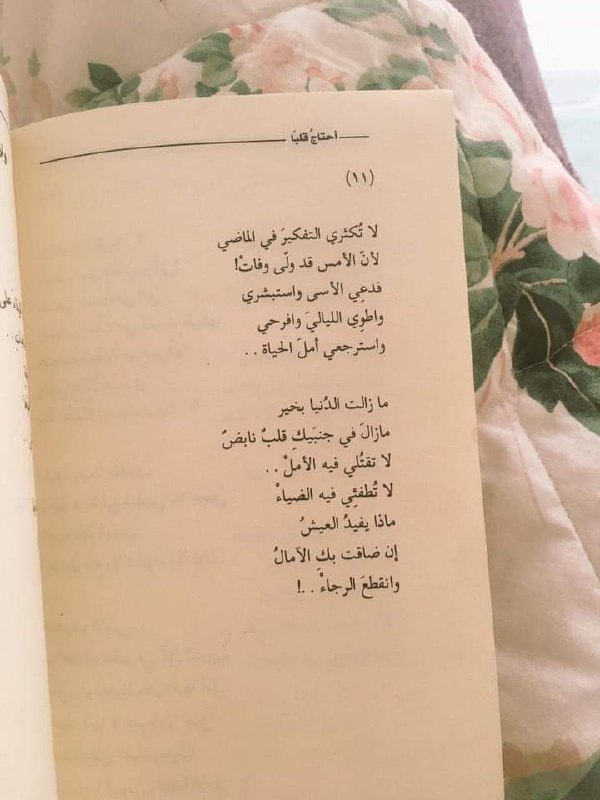 احتاجُ قلبًا
(١١)
لا تُكثري التفكيرَ في الماضي
لأنّ الأمس قد ولّى وفاتْ!
فدعِي الأسى واستبشري
واطوِي الليالِيَ وافرحي
واسترجعي أملَ الحياة . .
ما زالت الدُنيا بخير
مازالَ في جنبَيكِ قلبٌ نابضٌ
لا تقتُلي فيه الأملْ . .
لا تُطفئِي فيه الضياءْ
ماذا يفيدُ العيشُ
إن ضاقت بكِ الآمالُ
وانقطعَ الرجاءْ . .!